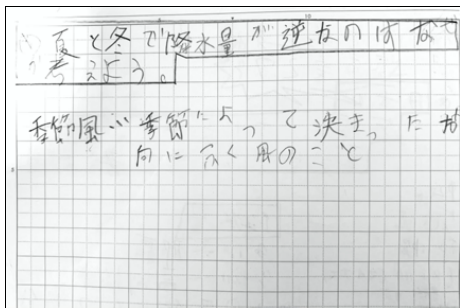 夏と冬で降水量が逆なのはなぜ
考えよう。
季節風…季節によって決まった方
向にふく風のこと